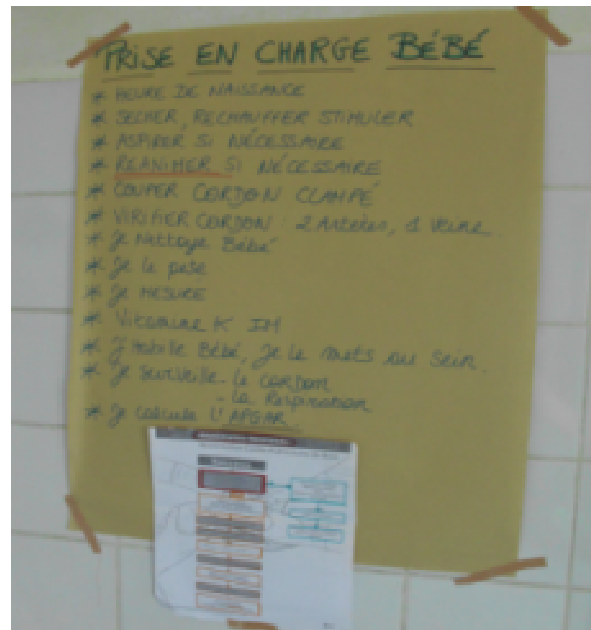 PRISE EN CHARGE BÉBÉ
* HEURE DE NAISSANCE
* SECHER, RECHAUFFER STIMULER
* ASPIRER SI NÉCESSAIRE
* REANIMER SI NÉCESSAIRE
* COUPER CORDON CLAMPÉ
* VIRIFIER CORDON : 2 Artères, 1 Veine.
* Je Nettoye Bébé
* Je le pèse
* Je MESURE
* Vitamine K IM
* J'Habille Bébé, Je le mets au Sein.
* Je surveille - le cordon
- la Respiration
* Je calcule L'APGAR